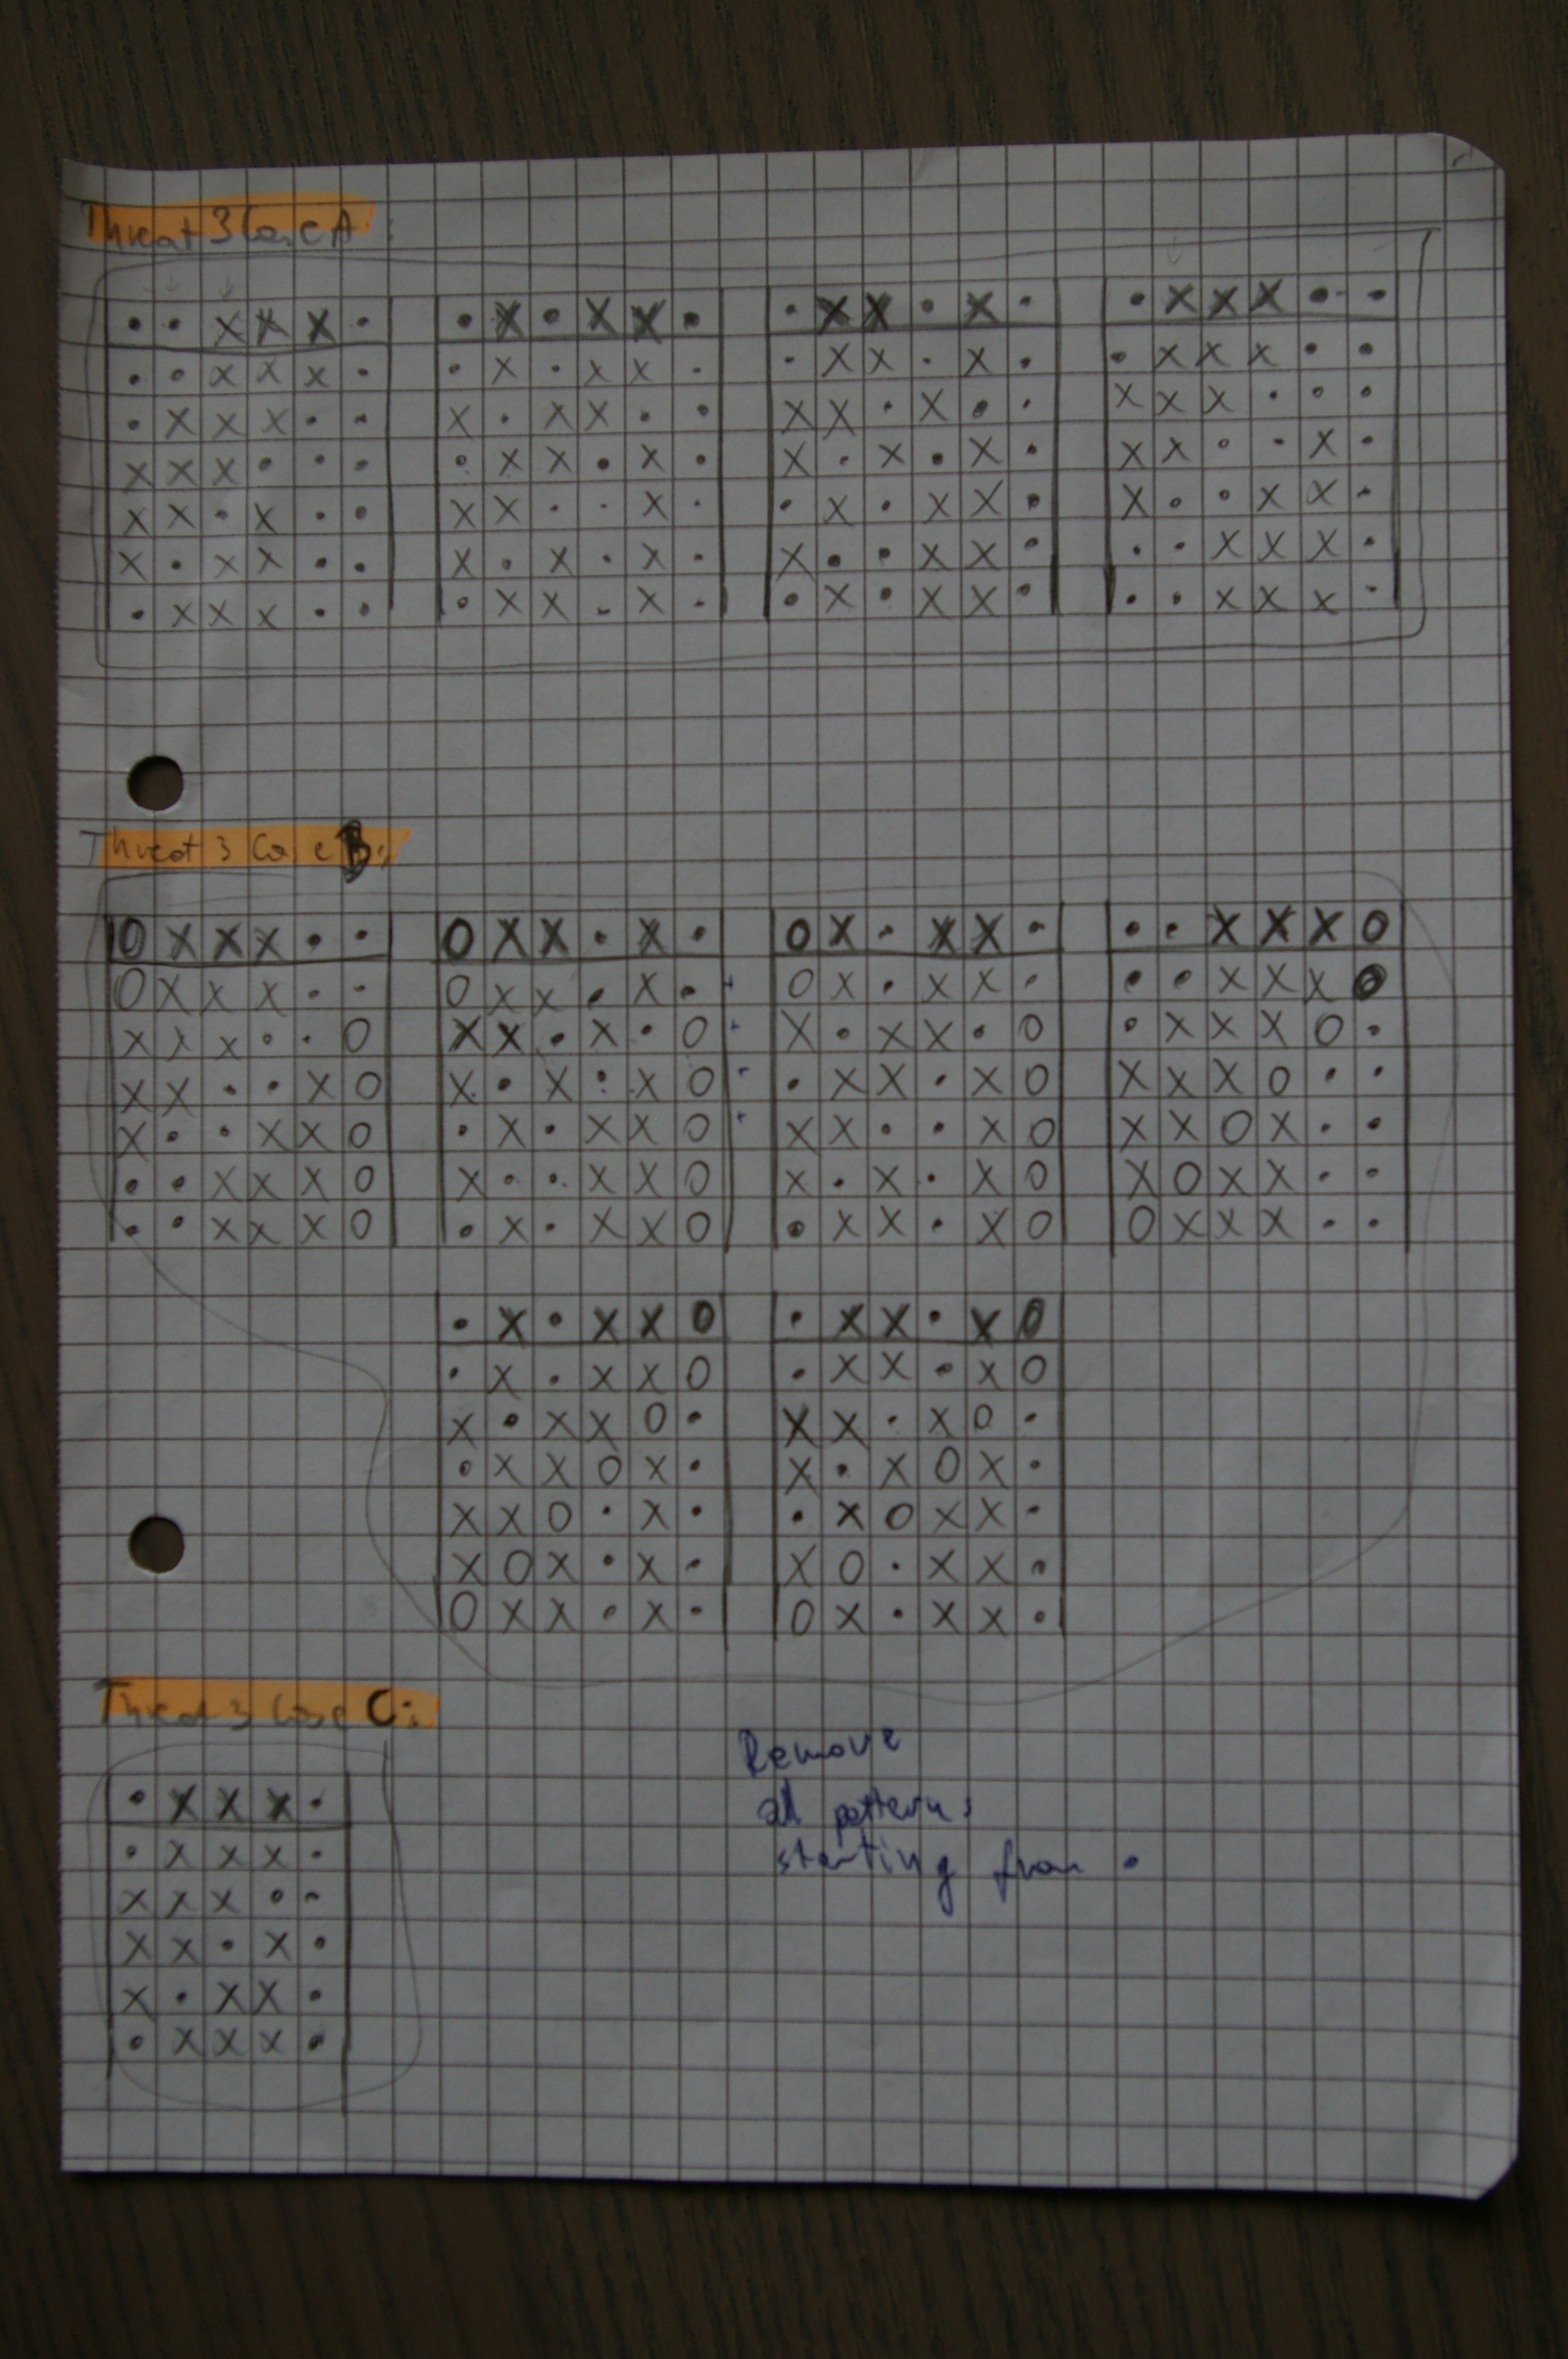 Threat 3 Case A:
• • X X X • • X • X X • • X X • X • • X X X • •
• • X X X • • X • X X • • X X • X • • X X X • •
• X X X • • X • X X • • X X • X • • X X X • • •
X X X • • • • X X • X • X • X • X • X X • • X •
X X • X • • X X • • X • • X • X X • X • • X X •
X • X X • • X • X • X • X • • X X • • • X X X •
• X X X • • • X X • X • • X • X X • • • X X X •
Threat 3 Case B:
O X X X • • O X X • X • O X • X X • • • X X X O
O X X X • • O X X • X • O X • X X • • • X X X O
X X X • • O X X • X • O X • X X • O • X X X O •
X X • • X O X • X • X O • X X • X O X X X O • •
X • • X X O • X • X X O X X • • X O X X O X • •
• • X X X O X • • X X O X • X • X O X O X X • •
• • X X X O • X • X X O • X X • X O O X X X • •
• X • X X O • X X • X O
• X • X X O • X X • X O
X • X X O • X X • X O •
• X X O X • X • X O X •
X X O • X • • X O X X •
X O X • X • X O • X X •
O X X • X • O X • X X •
Threat 3 Case C:
• X X X •
• X X X •
X X X • •
X X • X •
X • X X •
• X X X •
Remove
all patterns
starting from •